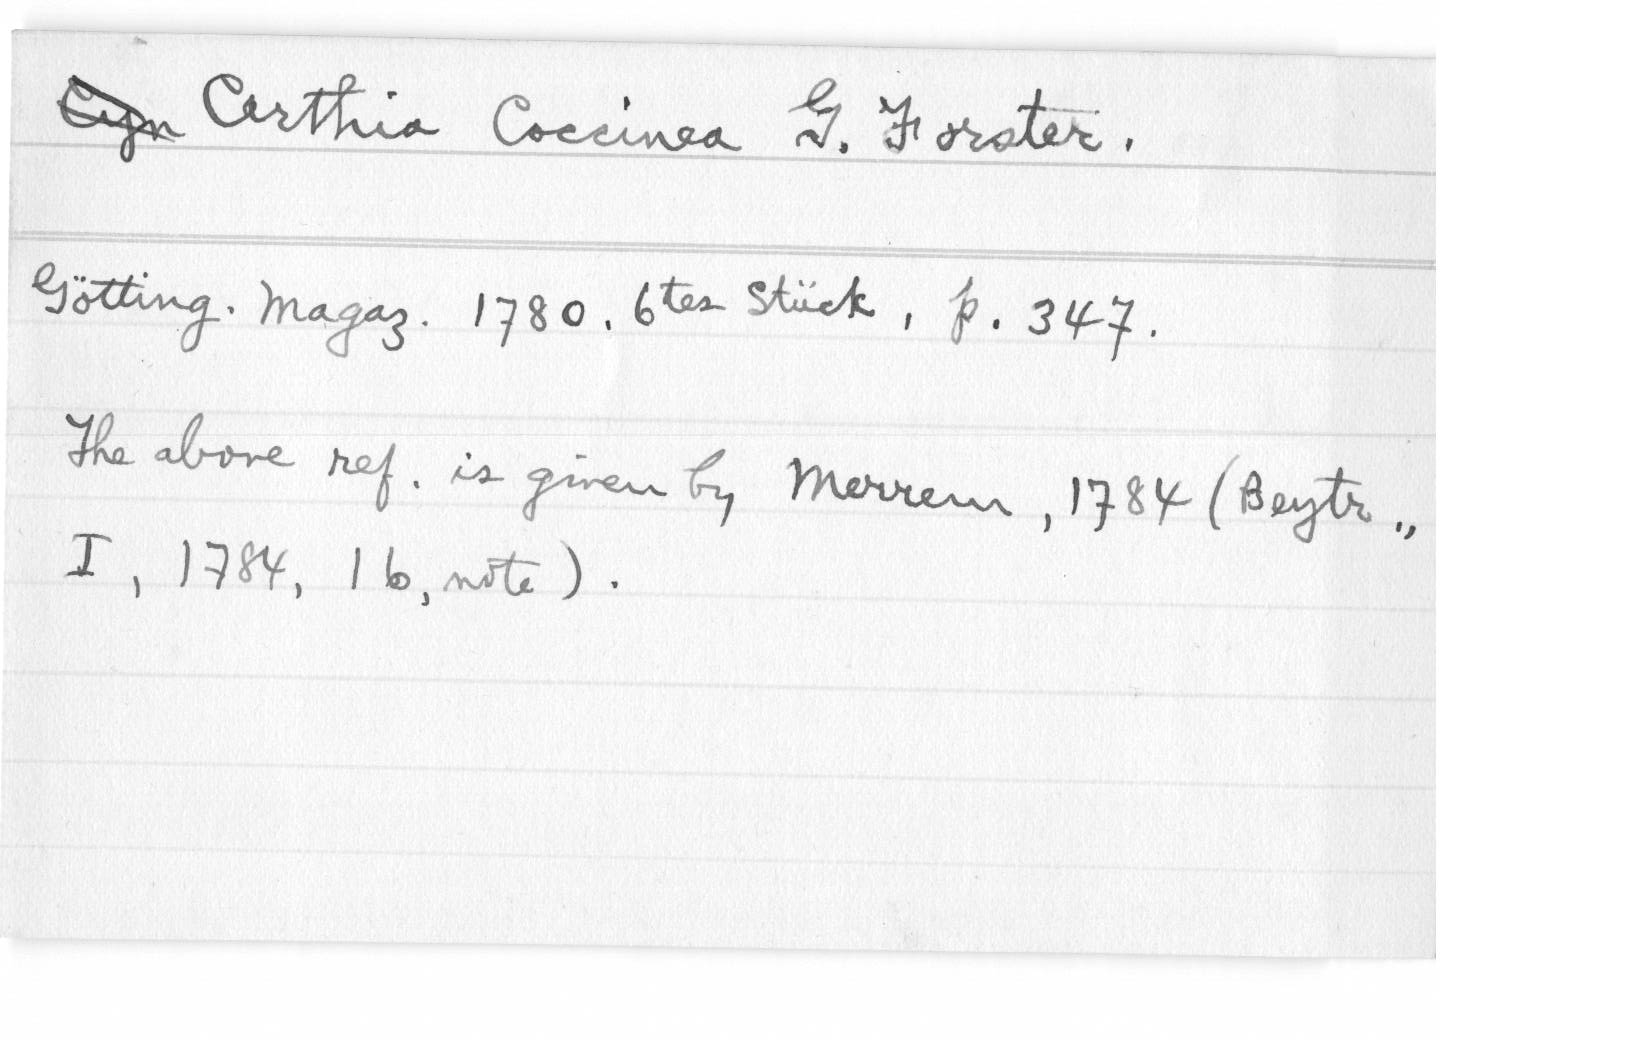 Certhia Coccinea G. Forster.
Götting. Magaz. 1780. 6tes Stück, p. 347.
The above ref. is given by Merrem, 1784 (Beytr.,
I, 1784, 16, note).